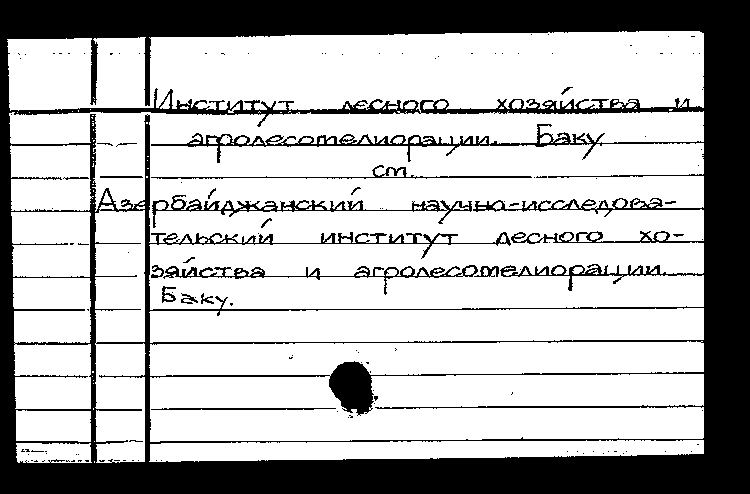 Институт лесного хозяйства и
агролесомелиорации. Баку
см.
Азербайджанский научно-исследова-
тельский институт лесного хо-
зяйства и агролесомелиорации.
Баку.